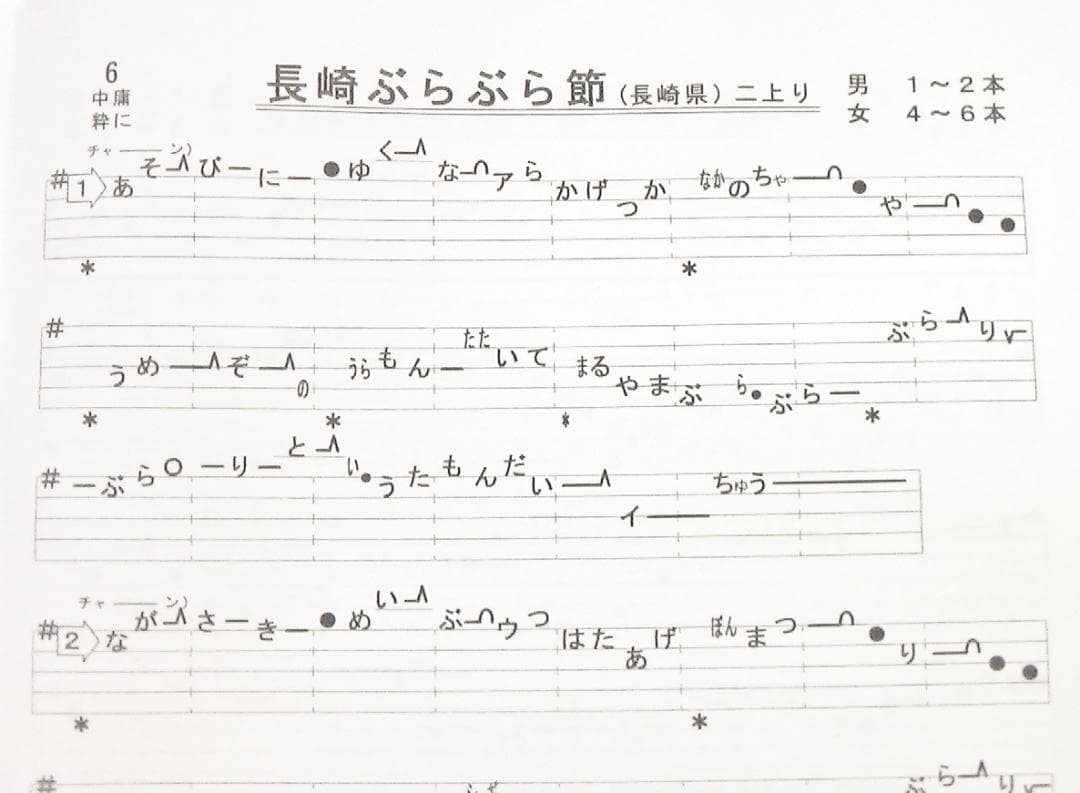 6
中庸
粋に
長崎ぶらぶら節(長崎県)二上り
男 1～2本
女 4～6本
チャ――ン)
# 1 あそーびーに―●ゆくーなーァらかげつか なかのちゃ―●やー●●
* *
# うめ―ぞーの うらもん―たたいて まるやまぶら●ぶら― ぶらーり√
* * * *
# ―ぶら○―り―とーい●うたもんだい―イ――ちゅう――
チャ――ン)
# 2 ながーさーき―●めいーぶーゥつはたあげ ぼんまつ―●り―●●
* *
# ぶらーり√